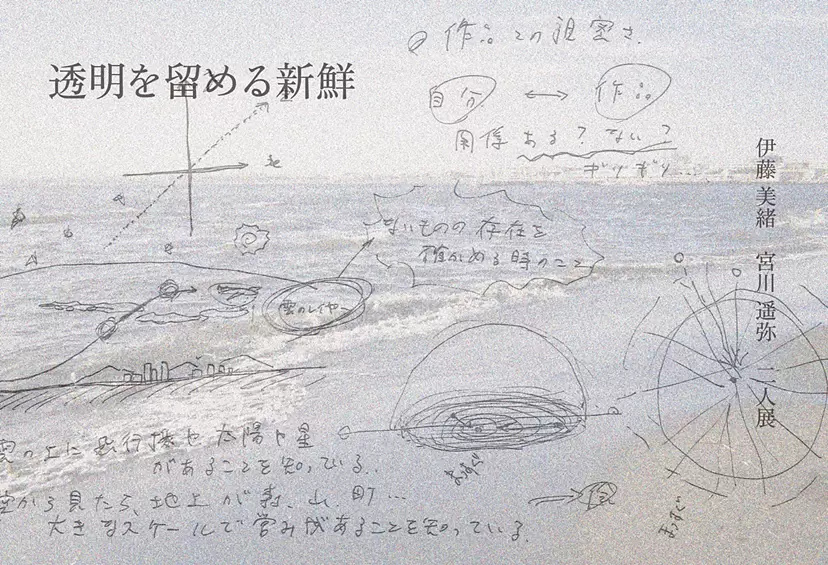 透明を留める新鮮
作品との親密さ
自分 ↔ 作品
関係ある？ない？
ギリギリ...
伊藤美緒 宮川遥弥 二人展
ないものの存在を
確かめる時のこと
雲のレイヤー
まっすぐ
まっすぐ
雲の上に飛行機や太陽や星
があることを知っている。
空から見たら、地上が森、山、町...
大きなスケールで営みがあることを知っている。